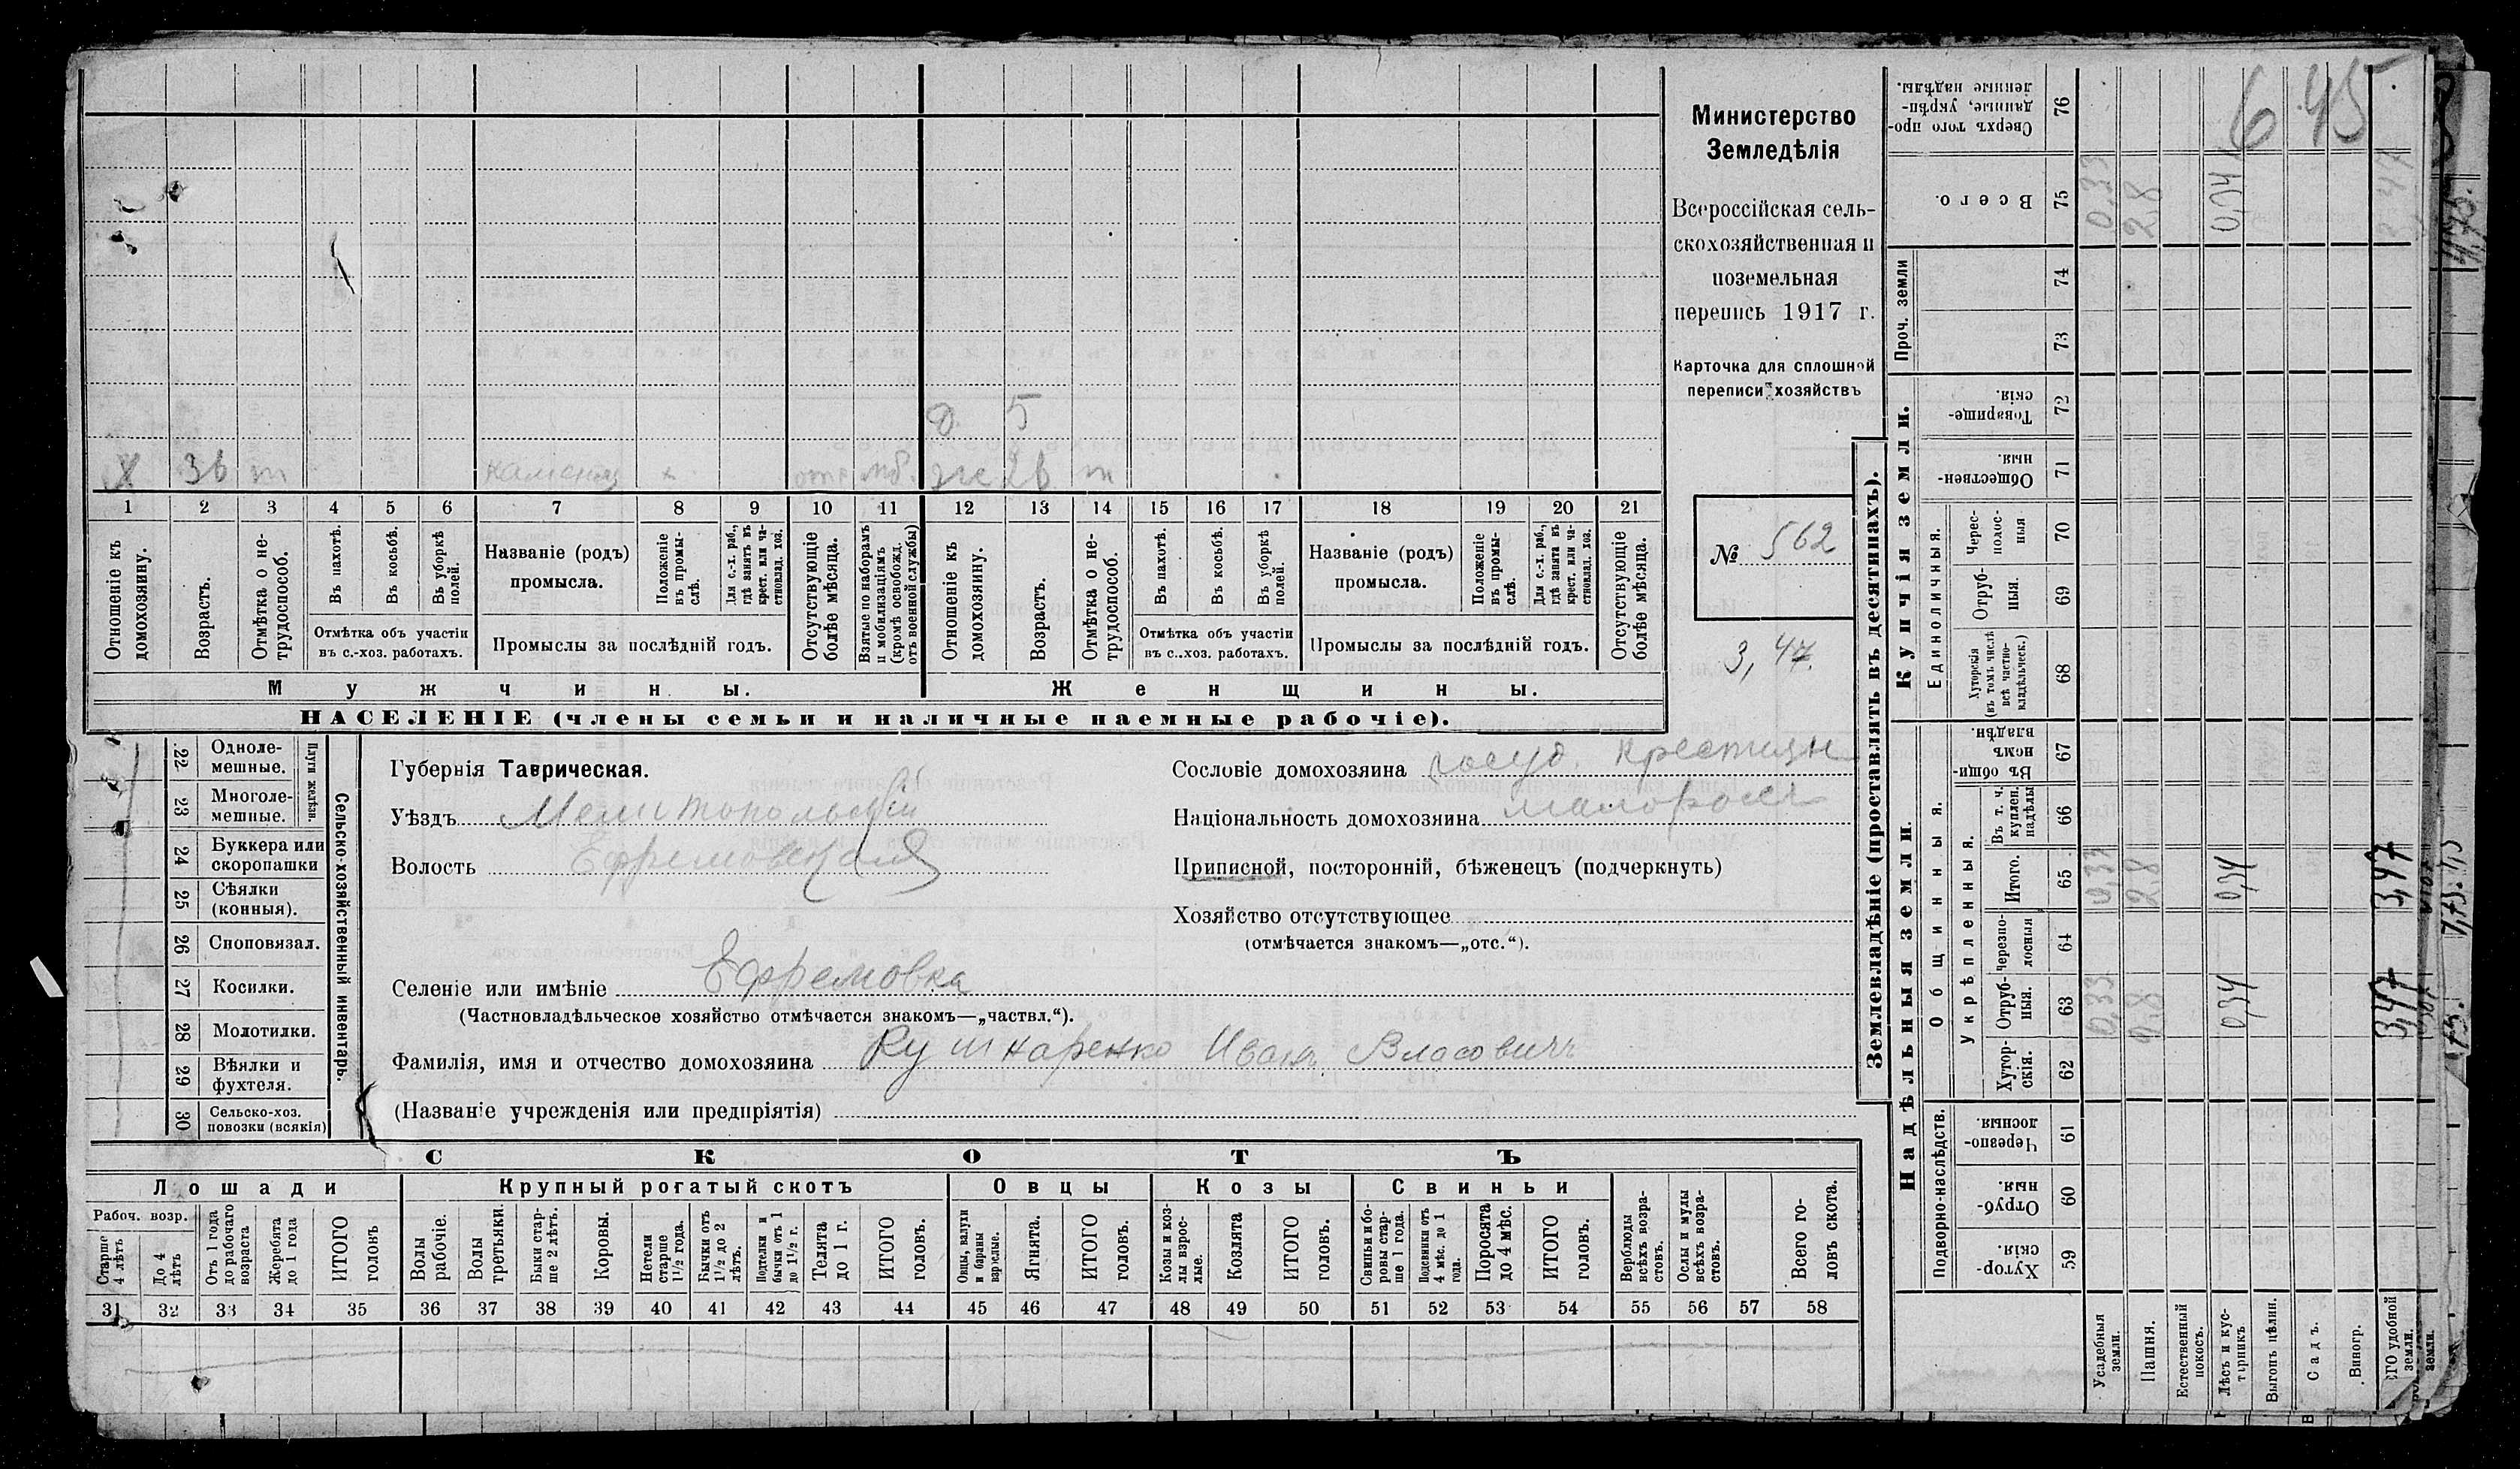 Министерство
Земледѣлія
Всероссійская сель-
скохозяйственная и
поземельная
перепись 1917 г.
Карточка для сплошной
переписи хозяйствъ
№ 562
3,47.
645
д. 5
Х 36 т
отс мб. ж 26 т
1 2 3 4 5 6 7 8 9 10 11 12 13 14 15 16 17 18 19 20 21
Отношеніе къ домохозяину.
Возрастъ.
Отмѣтка о не-трудоспособ.
Въ пахотѣ.
Въ косьбѣ.
Въ уборкѣ полей.
Отмѣтка объ участіи
въ с.-хоз. работахъ.
Названіе (родъ)
промысла.
Положеніе въ промы-слѣ.
Для с.-х. раб., гдѣ занятъ въ крест. или ча-стновлад. хоз.
Промыслы за послѣдній годъ.
Отсутствующіе болѣе мѣсяца.
Взятые по наборамъ и мобилизаціямъ (кромѣ освобожд. отъ военной службы)
Отношеніе къ домохозяину.
Возрастъ.
Отмѣтка о не-трудоспособ.
Въ пахотѣ.
Въ косьбѣ.
Въ уборкѣ полей.
Отмѣтка объ участіи
въ с.-хоз. работахъ.
Названіе (родъ)
промысла.
Положеніе въ промы-слѣ.
Для с.-х. раб., гдѣ занята въ крест. или ча-стновлад. хоз.
Промыслы за послѣдній годъ.
Отсутствующіе болѣе мѣсяца.
Мужчины.
Женщины.
НАСЕЛЕНІЕ (члены семьи и наличные наемные рабочіе).
Сельско-хозяйственный инвентарь.
Плуги желѣзн.
22 Одноле-мешные.
23 Многоле-мешные.
24 Буккера или скоропашки
25 Сѣялки (конныя).
26 Сноповязал.
27 Косилки.
28 Молотилки.
29 Вѣялки и фухтеля.
30 Сельско-хоз. повозки (всякія)
Губернія Таврическая.
Уѣздъ Мелитопольскій
Волость Ефремовская
Сословіе домохозяина госуд. крестьян
Національность домохозяина малоросс
Приписной, посторонній, бѣженецъ (подчеркнуть)
Хозяйство отсутствующее
(отмѣчается знакомъ—„отс.“).
Селеніе или имѣніе Ефремовка
(Частновладѣльческое хозяйство отмѣчается знакомъ—„частвл.“).
Фамилія, имя и отчество домохозяина Кушнаренко Иванъ Власовичъ
(Названіе учрежденія или предпріятія)
СКОТЪ
Лошади
Крупный рогатый скотъ
Овцы
Козы
Свиньи
Рабоч. возр.
Старше 4 лѣтъ
До 4 лѣтъ
Отъ 1 года до рабочаго возраста
Жеребята до 1 года
ИТОГО головъ
Волы рабочіе.
Волы третьяки.
Быки стар-ше 2 лѣтъ.
Коровы.
Нетели старше 1½ года.
Бычки отъ 1½ до 2 лѣтъ.
Подтелки и бычки отъ 1 до 1½ г.
Телята до 1 г.
ИТОГО головъ.
Овцы, валухи и бараны взрослые.
Ягнята.
ИТОГО головъ.
Козы и коз-лы взрос-лые.
Козлята
ИТОГО головъ.
Свиньи и бо-ровы стар-ше 1 года.
Подсвинки отъ 4 мѣс. до 1 года.
Поросята до 4 мѣс.
ИТОГО головъ.
Верблюды всѣхъ возра-стовъ.
Ослы и мулы всѣхъ возра-стовъ.
Всего го-ловъ скота.
31 32 33 34 35 36 37 38 39 40 41 42 43 44 45 46 47 48 49 50 51 52 53 54 55 56 57 58
Землевладѣніе (проставлять въ десятинахъ).
Купчія земли.
Надѣльныя земли.
Сверхъ того про-данные, укрѣп-ленные надѣлы. 76
Всего. 75 0,33 2,8 0,34 3,47
Проч. земли
74
73
Товарище-скія. 72
Обществен-ныя. 71
Единоличныя.
Черес-полос-ныя 70
Отруб-ныя. 69
Хуторскія (въ томъ числѣ всѣ частно-владѣльческ.) 68
Общинныя.
Въ общи-номъ владѣн. 67
Укрѣпленныя.
Въ т. ч. куплен. надѣлы 66
Итого. 65 0,33 2,8 0,34 3,47
Черезпо-лосныя 64
Отруб-ныя. 63 0,33 2,8 0,34 3,47
Хутор-скія. 62
Подворно-наслѣдств.
Черезпо-лосныя 61
Отруб-ныя. 60
Хутор-скія. 59
Усадебныя земли.
Пашня.
Естественный покосъ.
Лѣсъ и кус-тарникъ
Выгонъ цѣлин.
Садъ.
Виногр.
ГО удобной земли.
земли.